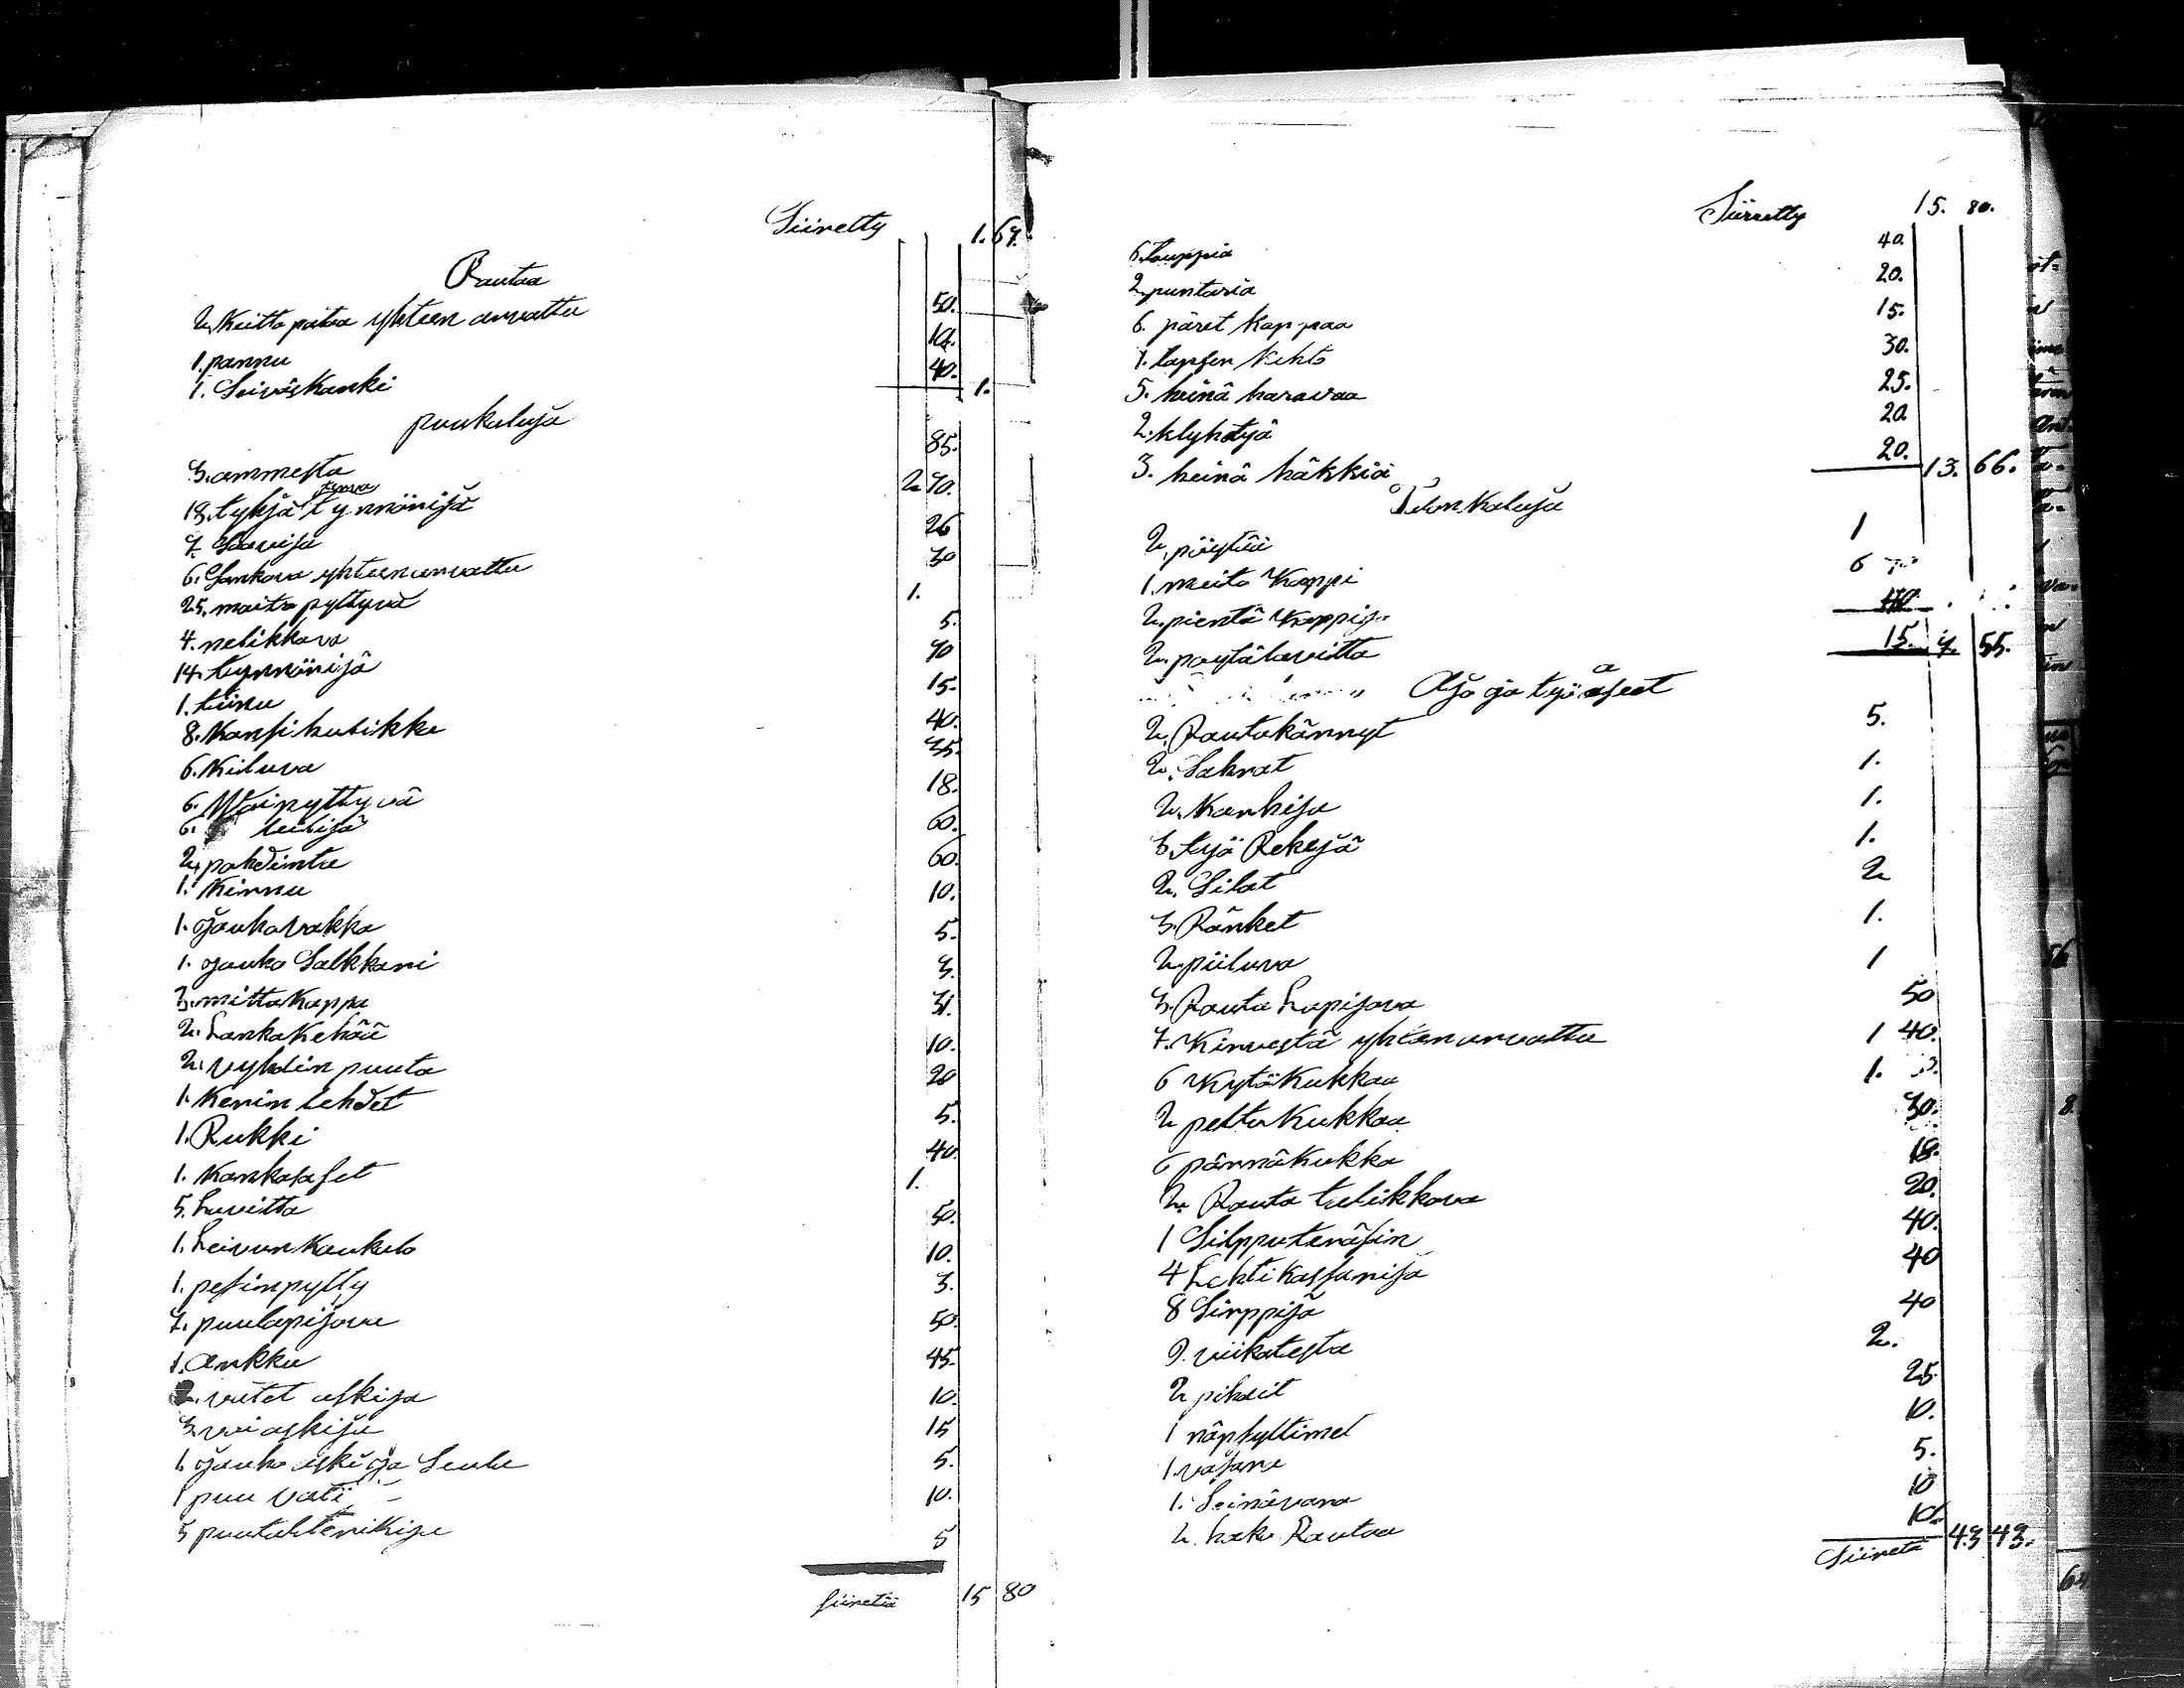 Siiretty 1. 64.
Rautaa
2. Keitto pataa yhteen arvattu 50.
1. pannu 10.
1. Seiväskanki 40. 1.
puukaluja
3. ammesta 85.
18. tyhjä terva tynnörijä 2 70.
7. Saavija 26
6. Sankova yhteen arvattu 30
25. maito pyttyvä 1.
4. nelikkova 5.
14. tynnörijä 70
1. tiinu 15.
8. Kansi 40.
6. Kiluva 35.
6. Woi pyttyvä 18.
6. leilijä 60.
2. pohdinta 60.
1. Kirnu 10.
1. jauhovakka 5.
1. jauho Salkkari 3.
3. mitta Kappa 31.
2. Lanka Kehää 10.
2. vyhdin puuta 20
1. Kerin lehdet 5.
1. Rukki 40.
1. Kankaset 1.
5. Lavitta 50.
1. Leivun Kaukalo 10.
1. pesinpytty 3.
7. puulapijova 50.
1. Ankku 45.
2. vatet askija 10.
3. voi askija 15
1. jauho aski ja Seula 5.
1 puu vati 10.
5 5
Siiretä 15 80
Siiretty 15. 80.
6. 40.
2. puntaria 20.
6. päret kappaa 15.
1. lapsen Kehto 30.
5. heinä haravaa 25.
2. klyhtyä 20.
3. heinä häkkiä 20. 13. 66.
kaluja
2. pöytää 1
1. maito Kaappi 6
2. pientä Kaappija
2. pöytälavitta 15. 7. 55.
Ajo ja työ aseet
2. Rautakännyt 5.
2. Sahrat 1.
2. Kankija 1.
3. työ Rekejä 1.
2. Silat 2
3. Ränket 1.
2. piiluva 1
3. Rauta Lapijova 50
7. Kirvestä yhteen arvattu 1 40.
6 Kytö Kukkaa 1.
2 pelto Kukkaa 30.
6 pärnä Kukka 18.
2. Rauta talikkova 20.
1 Silpputeräsin 40.
4 Lehti Kassarija 40
8 Sirppijä 40
9. viikatesta 2.
2 pihdit 25
1 näpsyttimet 10.
1 vasara 5.
1. Seinävara 10
2. hako Rautaa 10.
Siiretä 43 43.